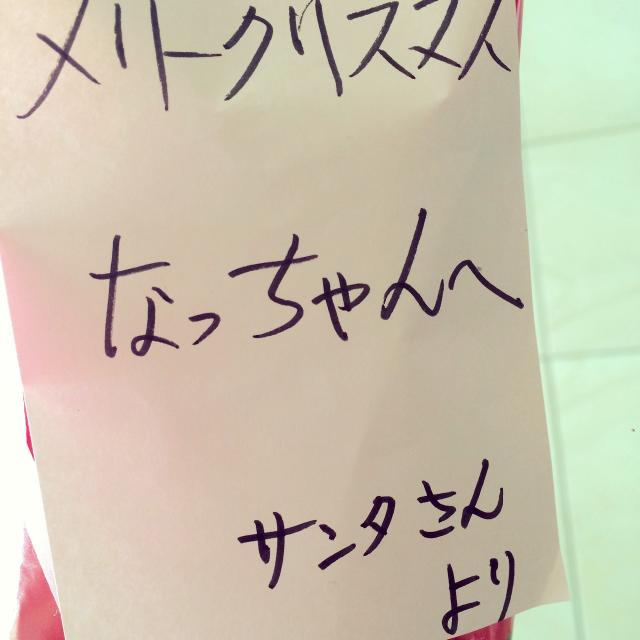 メリークリスマス
なっちゃんへ
サンタさん
より